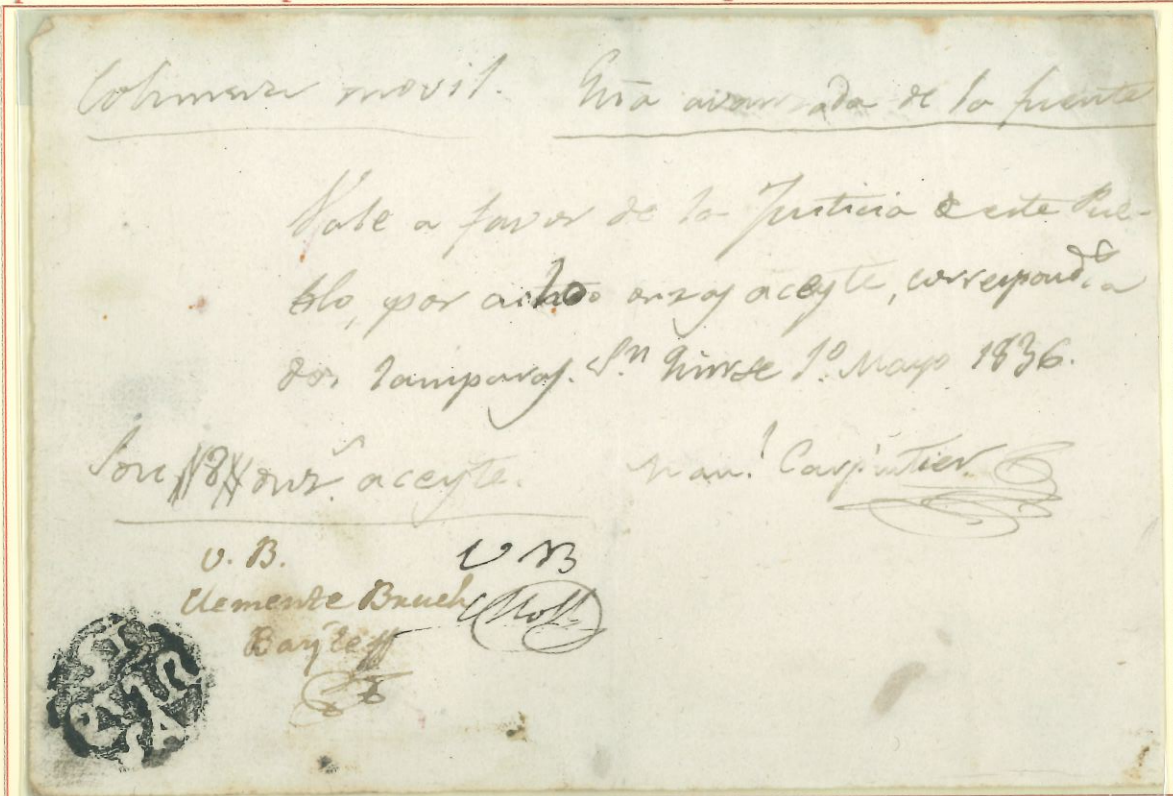 Colunna movil. avanzada de la fuente
Vale a favor de la Justicia de este Pue-
blo, por ocho onzas aceyte, correspond.a
dos lamparas. Sn 1º. Mayo 1836.
Son 8 onz.s aceyte. Man.l Carpintier.
V. B. V B
Clemente Bruch
Bayle